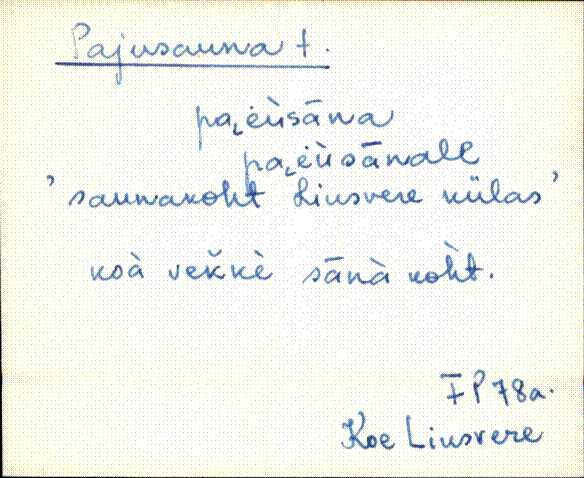 Pajusauna t.
paꞈèùsāna
paꞈèùsānalE
'saunakoht Liusvere külas'
koà veǩkè sānà koh̀t.
FP 78a.
Koe Liusvere